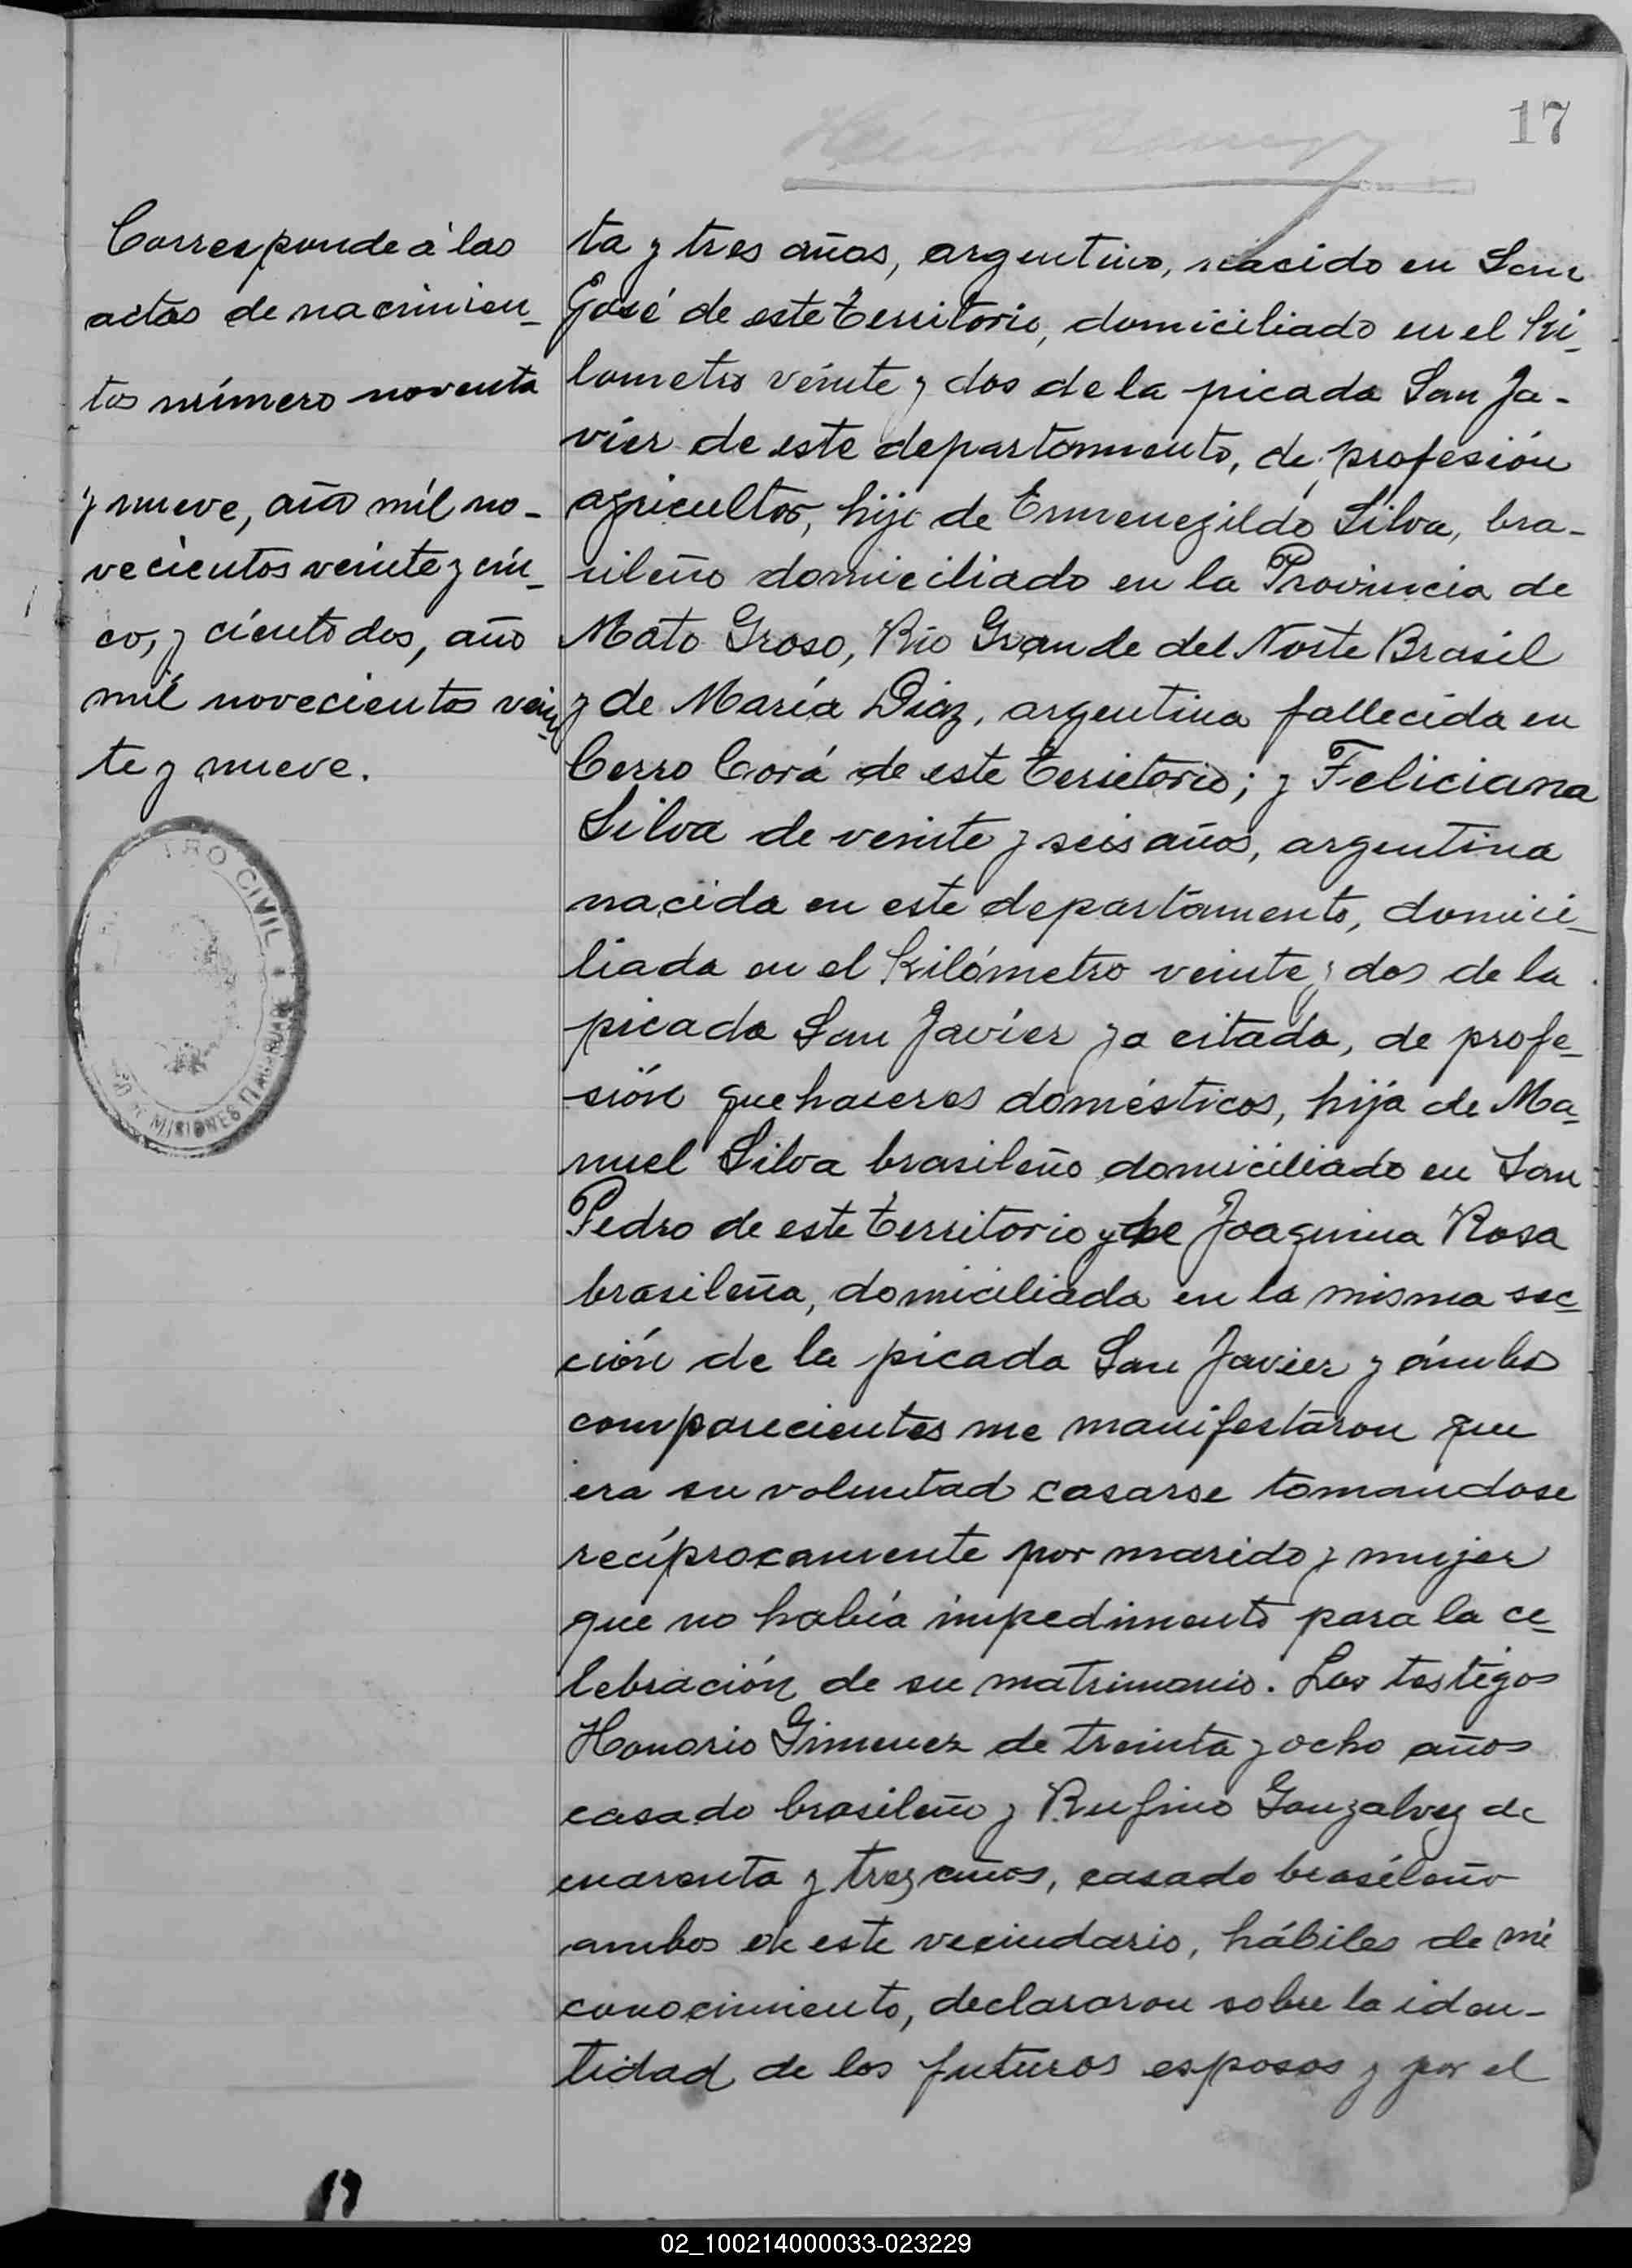 17
Corresponde á las
actas de nacimien_
tos número noventa
y nueve, año mil no-
vecientos veinte y cin_
co, y ciento dos, año
mil novecientos vein_
te y nueve.
TRO CIVIL
MISIONES
ta y tres años, argentino, nacido en San
José de este territorio, domiciliado en el ki_
lometro veinte y dos de la picada San Ja-
vier de este departamento, de profesión
agricultor, hijo de Ermenegildo Silva, bra-
sileño domiciliado en la Provincia de
Mato Groso, Rio Grande del Norte Brasil
y de María Diaz, argentina fallecida en
Cerro Corá de este territorio; y Feliciana
Silva de veinte y seis años, argentina
nacida en este departamento, domici_
liada en el kilómetro veinte y dos de la
picada San Javier ya citada, de profe_
sión quehaceres domésticos, hija de Ma_
nuel Silva brasileño domiciliado en San
Pedro de este territorio y de Joaquina Rosa
brasileña, domiciliada en la misma sec_
ción de la picada San Javier y ámbos
comparecientes me manifestaron que
era su voluntad casarse tomandose
recíprocamente por marido y mujer
que no había impedimento para la ce_
lebración de su matrimonio. Los testigos
Honorio Gimenez de treinta y ocho años
casado brasileño y Rufino Gonzalvez de
cuarenta y trez años, casado brasileño
ambos de este vecindario, hábiles de mi
conocimiento, declararon sobre la iden-
tidad de los futuros esposos y por el
02_100214000033-023229